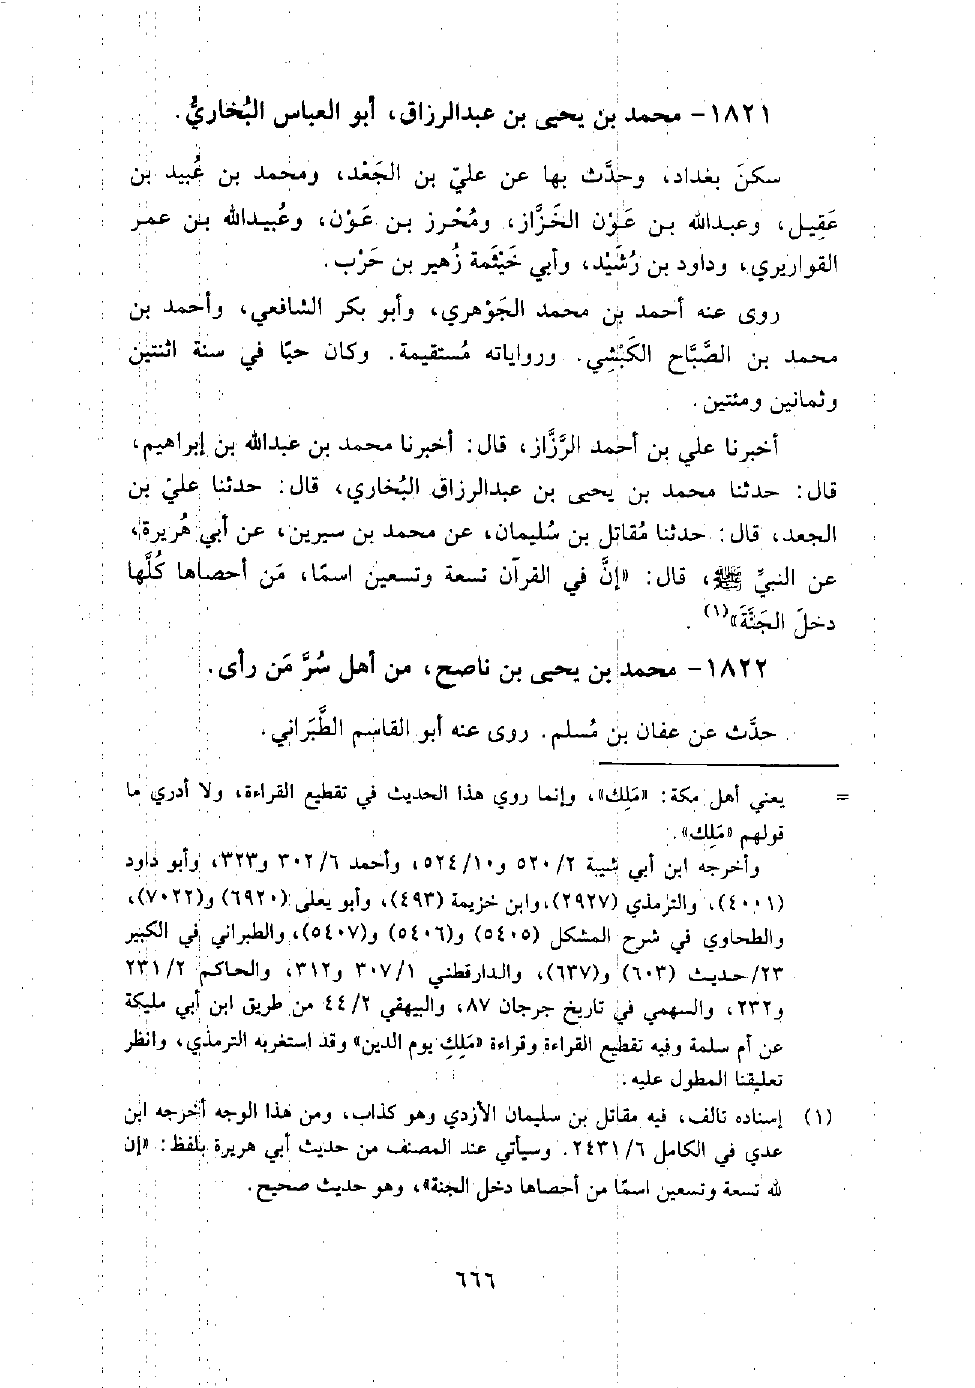 ١٨٢١- محمد بن يحيى بن عبدالرزاق، أبو العباس البُخاريُّ.
سكنَ بغداد، وحدَّث بها عن عليّ بن الجَعْد، ومحمد بن عُبيد بن
عَقِيل، وعبدالله بن عَوْن الخَزَّاز، ومُحْرز بن عَوْن، وعُبيدالله بن عمر
القواريري، وداود بن رُشَيْد، وأبي خَيْثمة زُهير بن حَرْب.
روى عنه أحمد بن محمد الجَوْهري، وأبو بكر الشافعي، وأحمد بن
محمد بن الصَّبَّاح الكَبْشِي. ورواياته مُستقيمة. وكان حيًا في سنة اثنتين
وثمانين ومئتين.
أخبرنا علي بن أحمد الرَّزَّاز، قال: أخبرنا محمد بن عبدالله بن إبراهيم،
قال: حدثنا محمد بن يحيى بن عبدالرزاق البُخاري، قال: حدثنا عليّ بن
الجعد، قال: حدثنا مُقاتل بن سُليمان، عن محمد بن سيرين، عن أبي هُريرة،
عن النبيِّ ﷺ، قال: «إنَّ في القرآن تسعة وتسعين اسمًا، مَن أحصاها كُلَّها
دخلَ الجَنَّةَ»(١).
١٨٢٢- محمد بن يحيى بن ناصح، من أهل سُرَّ مَن رأى.
حدَّث عن عفان بن مُسلم. روى عنه أبو القاسم الطَّبَراني.
= يعني أهل مكة: «مَلِك»، وإنما روي هذا الحديث في تقطيع القراءة، ولا أدري ما
قولهم «مَلِك».
وأخرجه ابن أبي شيبة ٢/ ٥٢٠ و١٠/ ٥٢٤، وأحمد ٦/ ٣٠٢ و٣٢٣، وأبو داود
(٤٠٠١)، والترمذي (٢٩٢٧)،وابن خزيمة (٤٩٣)، وأبو يعلى (٦٩٢٠) و(٧٠٢٢)،
والطحاوي في شرح المشكل (٥٤٠٥) و(٥٤٠٦) و(٥٤٠٧)، والطبراني في الكبير
٢٣/حديث (٦٠٣) و(٦٣٧)، والدارقطني ١/ ٣٠٧ و٣١٢، والحاكم ٢/ ٢٣١
و٢٣٢، والسهمي في تاريخ جرجان ٨٧، والبيهقي ٢/ ٤٤ من طريق ابن أبي مليكة
عن أم سلمة وفيه تقطيع القراءة وقراءة «مَلِكِ يوم الدين» وقد استغربه الترمذي، وانظر
تعليقنا المطول عليه.
(١) إسناده تالف، فيه مقاتل بن سليمان الأزدي وهو كذاب، ومن هذا الوجه أخرجه ابن
عدي في الكامل ٦/ ٢٤٣١. وسيأتي عند المصنف من حديث أبي هريرة بلفظ: «إن
لله تسعة وتسعين اسمًا من أحصاها دخل الجنة»، وهو حديث صحيح.
٦٦٦